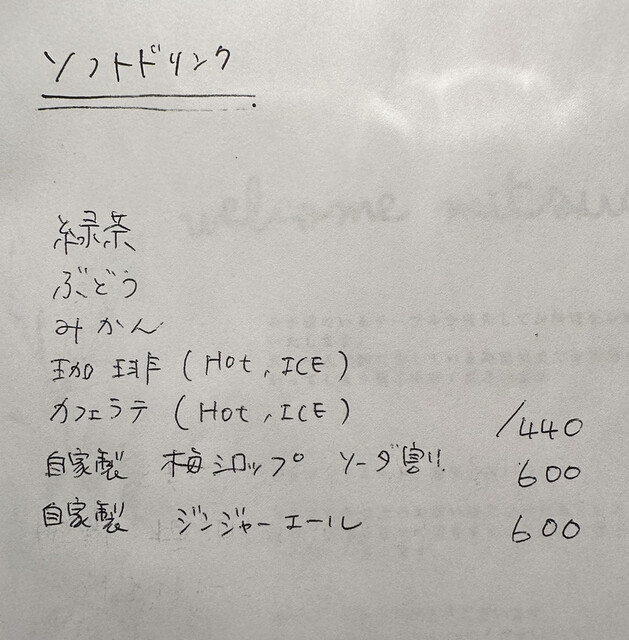 ソフトドリンク
緑茶
ぶどう
みかん
珈琲 (Hot, ICE)
カフェラテ (Hot, ICE) /440
自家製 梅シロップ ソーダ割り 600
自家製 ジンジャーエール 600